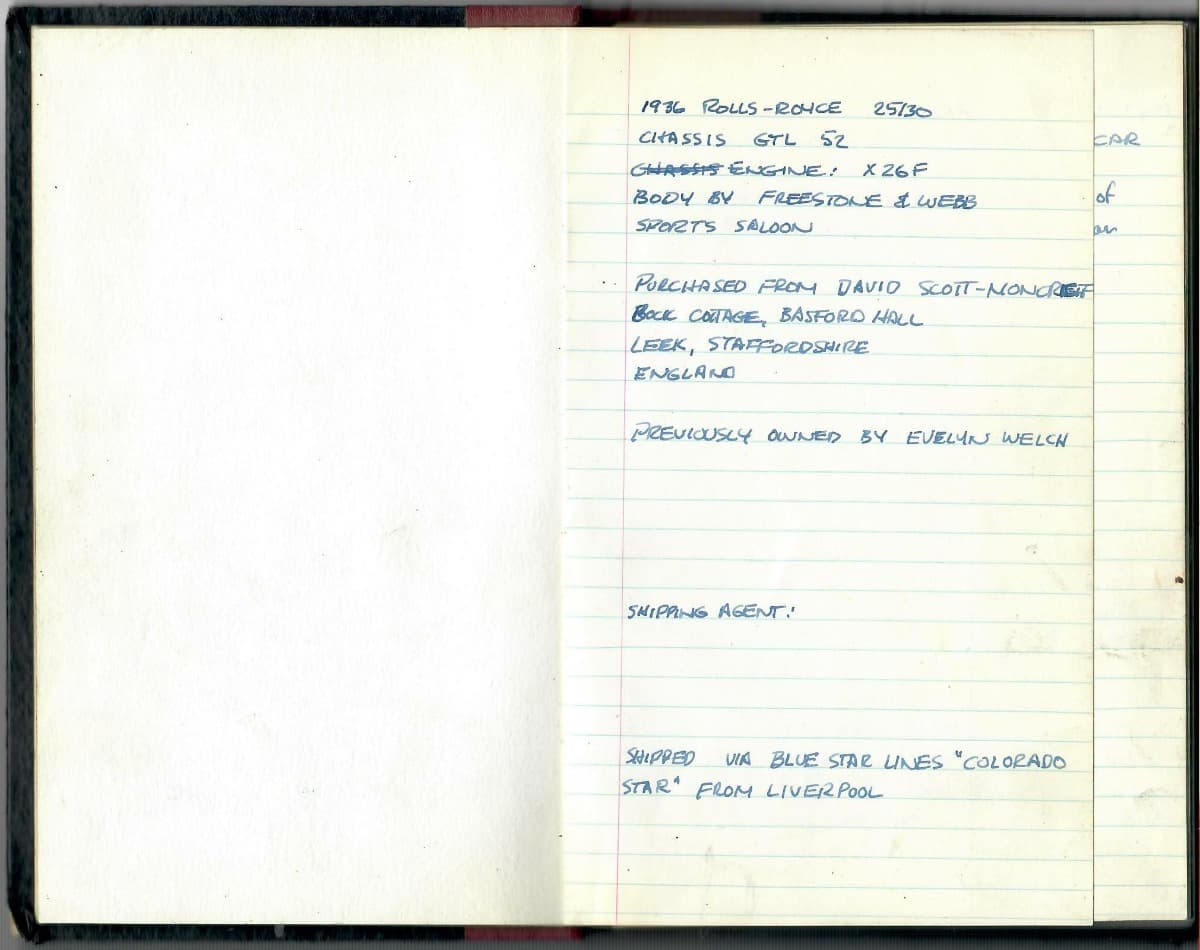 1936 ROLLS-ROYCE 25/30
CHASSIS GTL 52
CHASSIS ENGINE: X26F
BODY BY FREESTONE & WEBB
SPORTS SALOON
PURCHASED FROM DAVID SCOTT-MONCRIEFF
COTTAGE, BASFORD HALL
LEEK, STAFFORDSHIRE
ENGLAND
PREVIOUSLY OWNED BY EVELYN WELCH
SHIPPING AGENT:
SHIPPED VIA BLUE STAR LINES "COLORADO
STAR" FROM LIVERPOOL
CAR
of